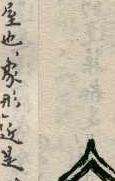 屋也、象形、近是